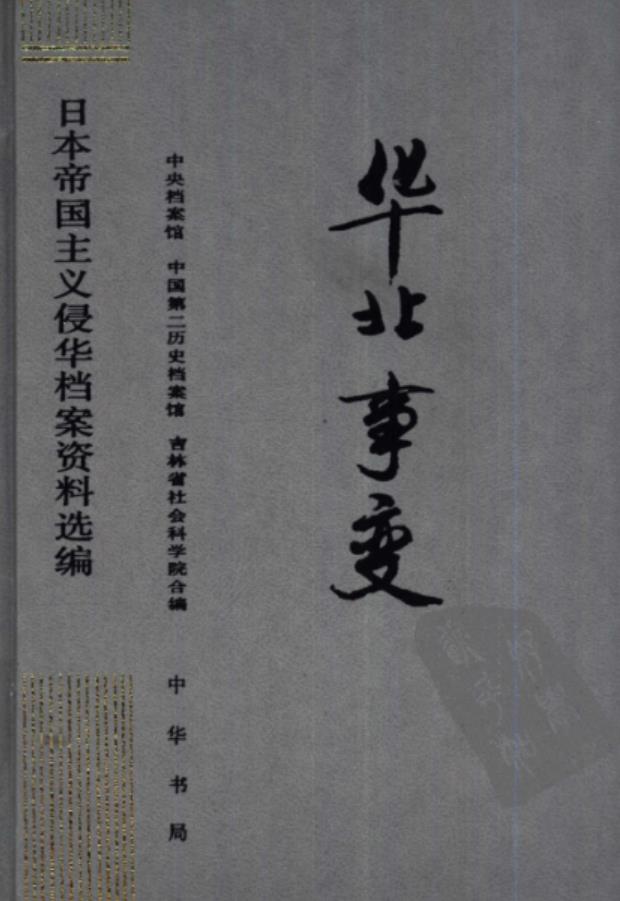 华北事变
中央档案馆 中国第二历史档案馆 吉林省社会科学院合编
中华书局
日本帝国主义侵华档案资料选编